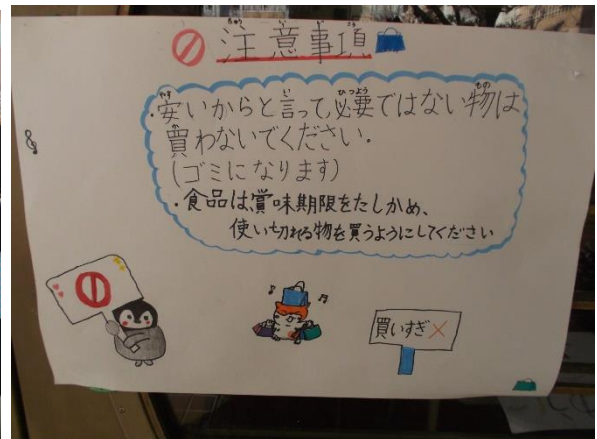 注意事項
・安いからと言って,必要ではない物は
買わないでください.
(ゴミになります)
・食品は,賞味期限をたしかめ、
使い切れる物を買うようにしてください
買いすぎ×